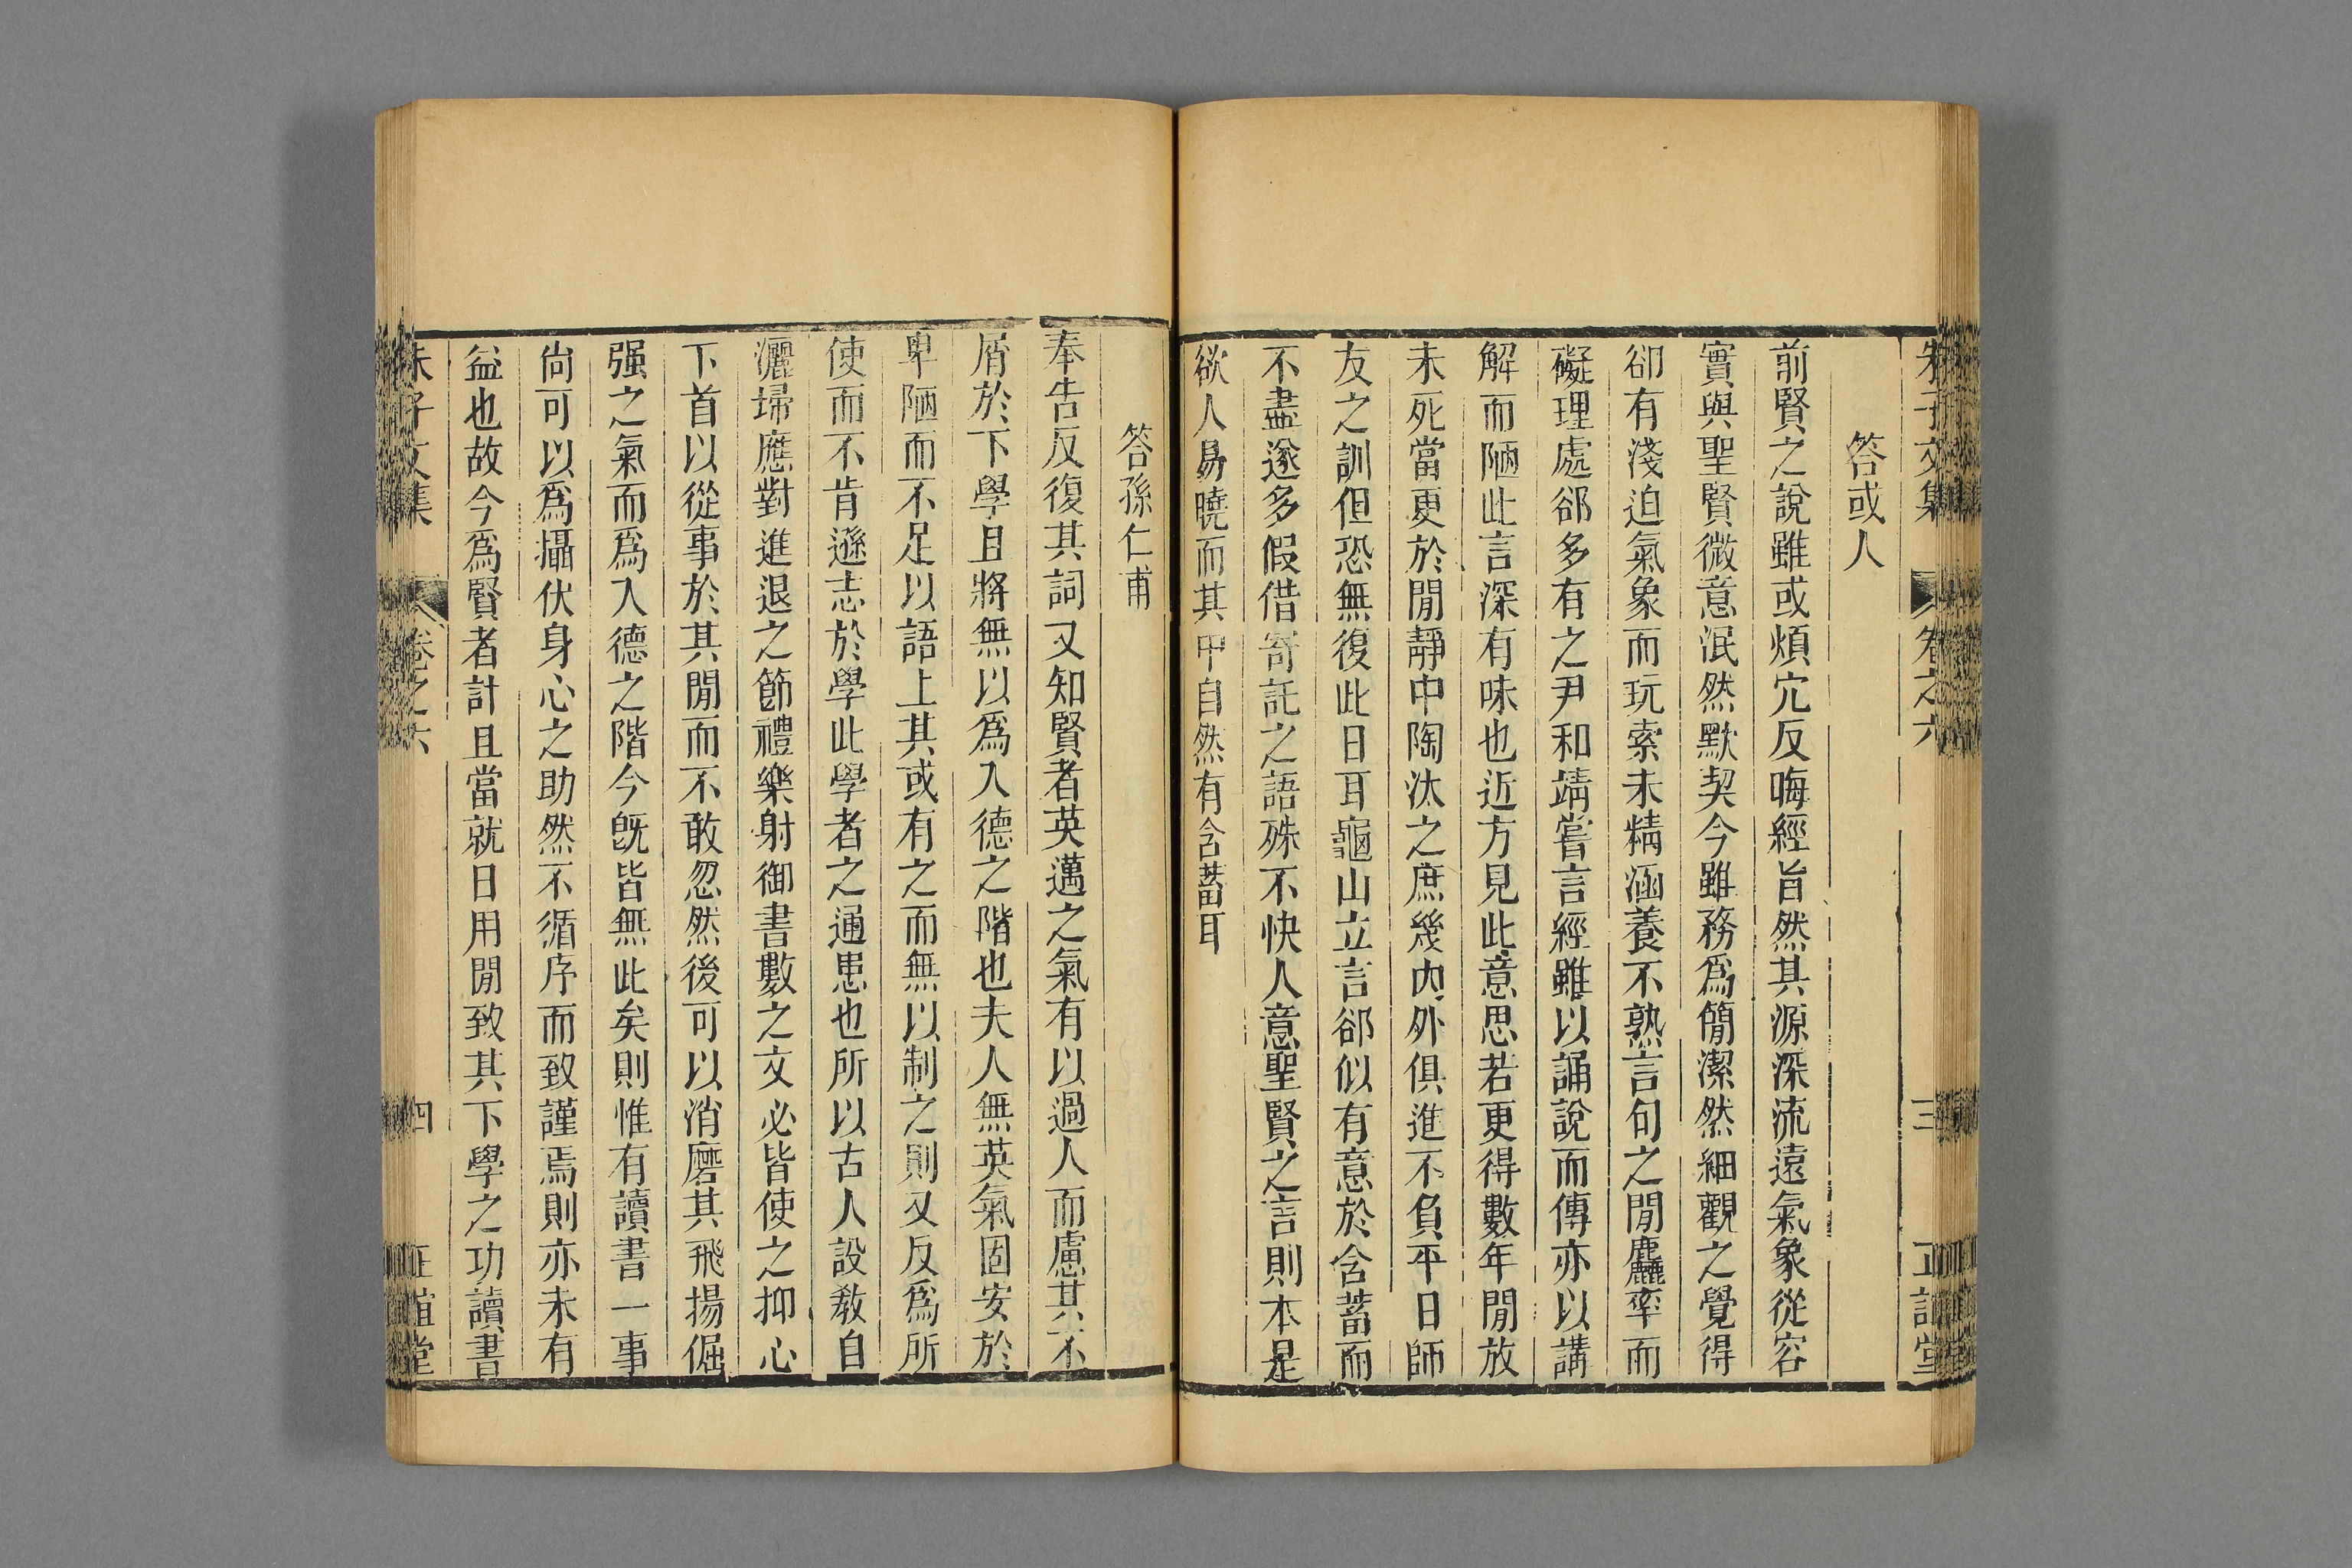 朱子文集 卷之六 三 正誼堂
答或人
前賢之說雖或煩宂反晦經旨然其源深流遠氣象從容
實與聖賢微意泯然默契今雖務爲簡潔然細觀之覺得
卻有淺迫氣象而玩索未精涵養不熟言句之閒麤率而
礙理處卻多有之尹和靖嘗言經雖以誦說而傳亦以講
解而陋此言深有味也近方見此意思若更得數年閒放
未死當更於閒靜中陶汰之庶幾內外俱進不負平日師
友之訓但恐無復此日耳龜山立言卻似有意於含蓄而
不盡遂多假借寄託之語殊不快人意聖賢之言則本是
欲人易曉而其中自然有含蓄耳
答孫仁甫
奉告反復其詞又知賢者英邁之氣有以過人而慮其不
屑於下學且將無以爲入德之階也夫人無英氣固安於
卑陋而不足以語上其或有之而無以制之則又反爲所
使而不肯遜志於學此學者之通患也所以古人設教自
灑埽應對進退之節禮樂射御書數之文必皆使之抑心
下首以從事於其閒而不敢忽然後可以消磨其飛揚倔
强之氣而爲入德之階今旣皆無此矣則惟有讀書一事
尙可以爲攝伏身心之助然不循序而致謹焉則亦未有
益也故今爲賢者計且當就日用閒致其下學之功讀書
朱子文集 卷之六 四 正誼堂